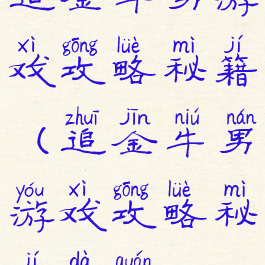 追金牛男游
xì gōng lüè mì jí
戏攻略秘籍
zhuī jīn niú nán
(追金牛男
yóu xì gōng lüè mì
游戏攻略秘
jí dà quán